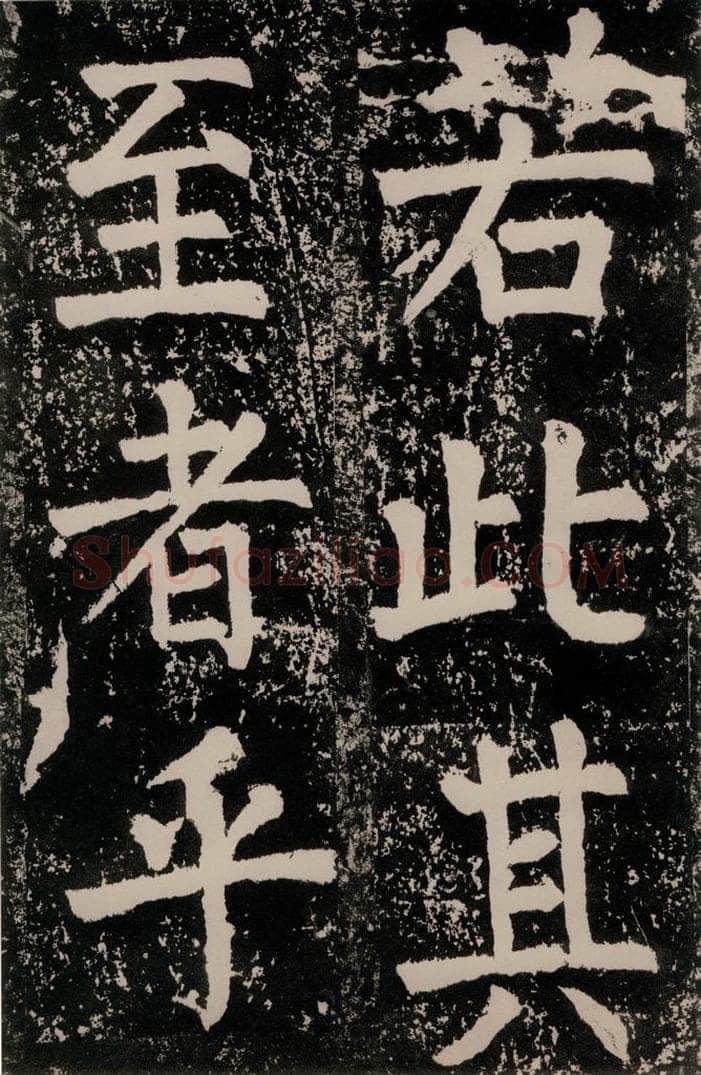 若此其
至者乎
Shufaziliao.COM